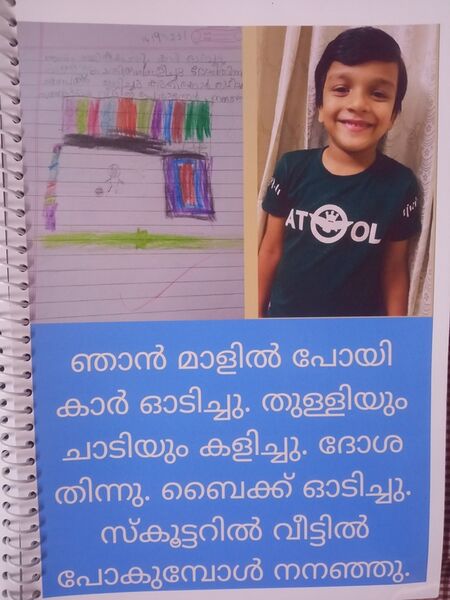 ATOOL
ഞാൻ മാളിൽ പോയി
കാർ ഓടിച്ചു. തുള്ളിയും
ചാടിയും കളിച്ചു. ദോശ
തിന്നു. ബൈക്ക് ഓടിച്ചു.
സ്കൂട്ടറിൽ വീട്ടിൽ
പോകുമ്പോൾ നനഞ്ഞു.